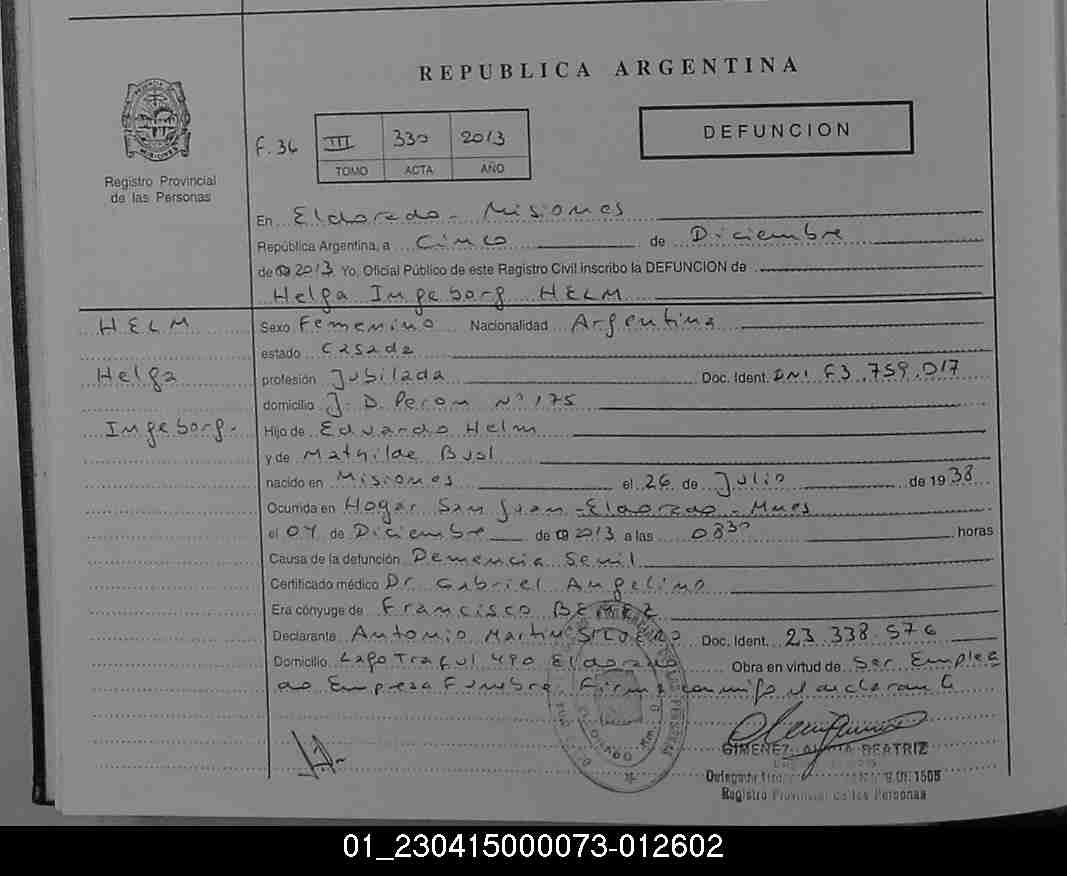 REPUBLICA ARGENTINA
Registro Provincial
de las Personas
F. 36
III 330 2013
TOMO ACTA AÑO
DEFUNCION
En Eldorado - Misiones
República Argentina, a Cinco de Diciembre
de 2013 Yo, Oficial Público de este Registro Civil inscribo la DEFUNCION de
Helga Ingeborg HELM
HELM
Helga
Ingeborg.-
Sexo Femenino Nacionalidad Argentina
estado Casada
profesión Jubilada Doc. Ident. DNI F3.759.017
domicilio J. D. Peron Nº 175
Hijo de Eduardo Helm
y de Mathilde Busl
nacido en Misiones el 26 de Julio de 1938
Ocurrida en Hogar San Juan - Eldorado - Mnes
el 04 de Diciembre de 2013 a las 0830 horas
Causa de la defunción Demencia Senil
Certificado médico Dr. Gabriel Angelino
Era cónyuge de Francisco
Declarante Antonio Martin Doc. Ident. 23.338.576
Domicilio Lago Traful 490 Eldorado Obra en virtud de Ser Emplea
do Empresa Funebre Firma conmigo el declarante
GIMENEZ BEATRIZ
Registro Provincial de las Personas
01_230415000073-012602